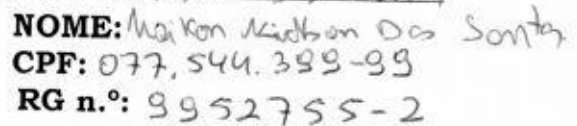 NOME: Maikon Kidtson Dos Santos
CPF: 077.544.399-99
RG n.º: 9952755-2